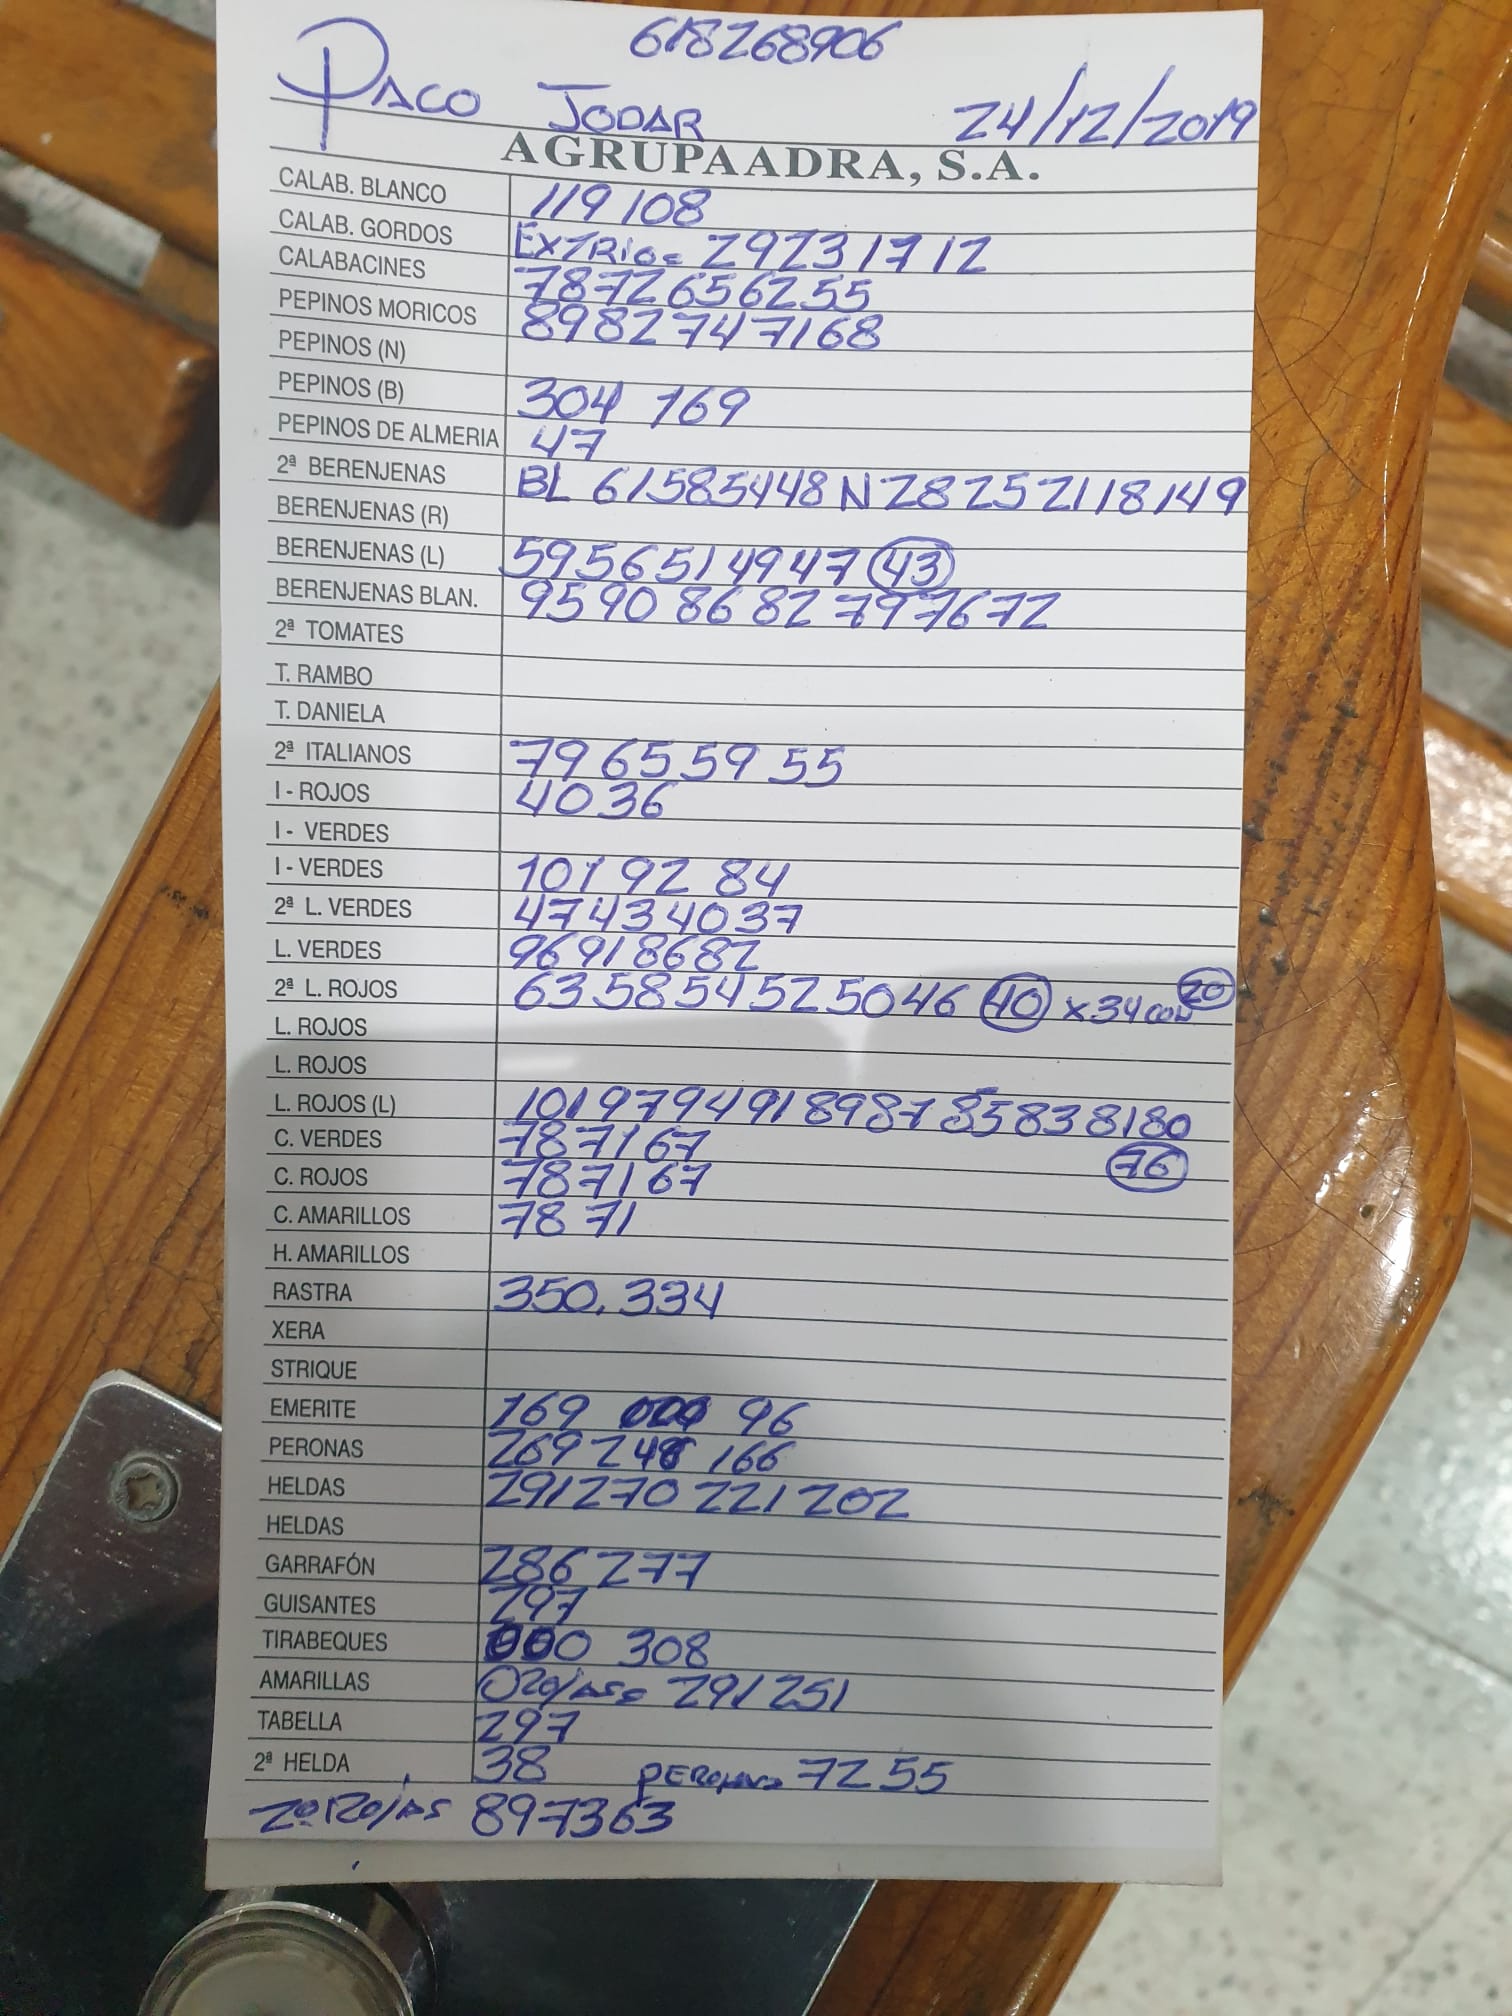 618268906
PACO JODAR 24/12/2019
AGRUPAADRA, S.A.
CALAB. BLANCO 119 108
CALAB. GORDOS 29 23 17 12
CALABACINES 78 72 65 62 55
PEPINOS MORICOS 89 82 74 71 68
PEPINOS (N)
PEPINOS (B) 304 169
PEPINOS DE ALMERIA 47
2ª BERENJENAS BL 61 58 54 48 N 28 25 21 18 14 9
BERENJENAS (R)
BERENJENAS (L) 59 56 51 49 47 43
BERENJENAS BLAN. 95 90 86 82 79 76 72
2ª TOMATES
T. RAMBO
T. DANIELA
2ª ITALIANOS 79 65 59 55
I - ROJOS 40 36
I - VERDES
I - VERDES 101 92 84
2ª L. VERDES 47 43 40 37
L. VERDES 96 91 86 82
2ª L. ROJOS 63 58 54 52 50 46 40 x 34 CON 20
L. ROJOS
L. ROJOS
L. ROJOS (L) 101 97 94 91 89 87 85 83 81 80
C. VERDES 78 71 67 76
C. ROJOS 78 71 67
C. AMARILLOS 78 71
H. AMARILLOS
RASTRA 350. 334
XERA
STRIQUE
EMERITE 169 96
PERONAS 269 248 166
HELDAS 291 270 221 202
HELDAS
GARRAFÓN 286 277
GUISANTES 297
TIRABEQUES 308
AMARILLAS 291 251
TABELLA 297
2ª HELDA 38 PERONAS 72 55
2ª ROJAS 89 73 63